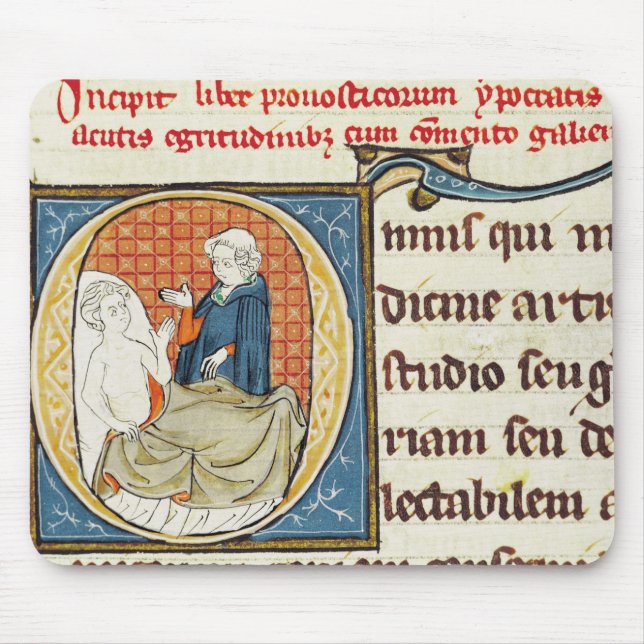 Incipit liber pronosticorum ypocratis
acutis egritudinibꝫ cum cōmento galien
mnis qui m
dicine artis
studio seu g
riam seu de
lectabilem a